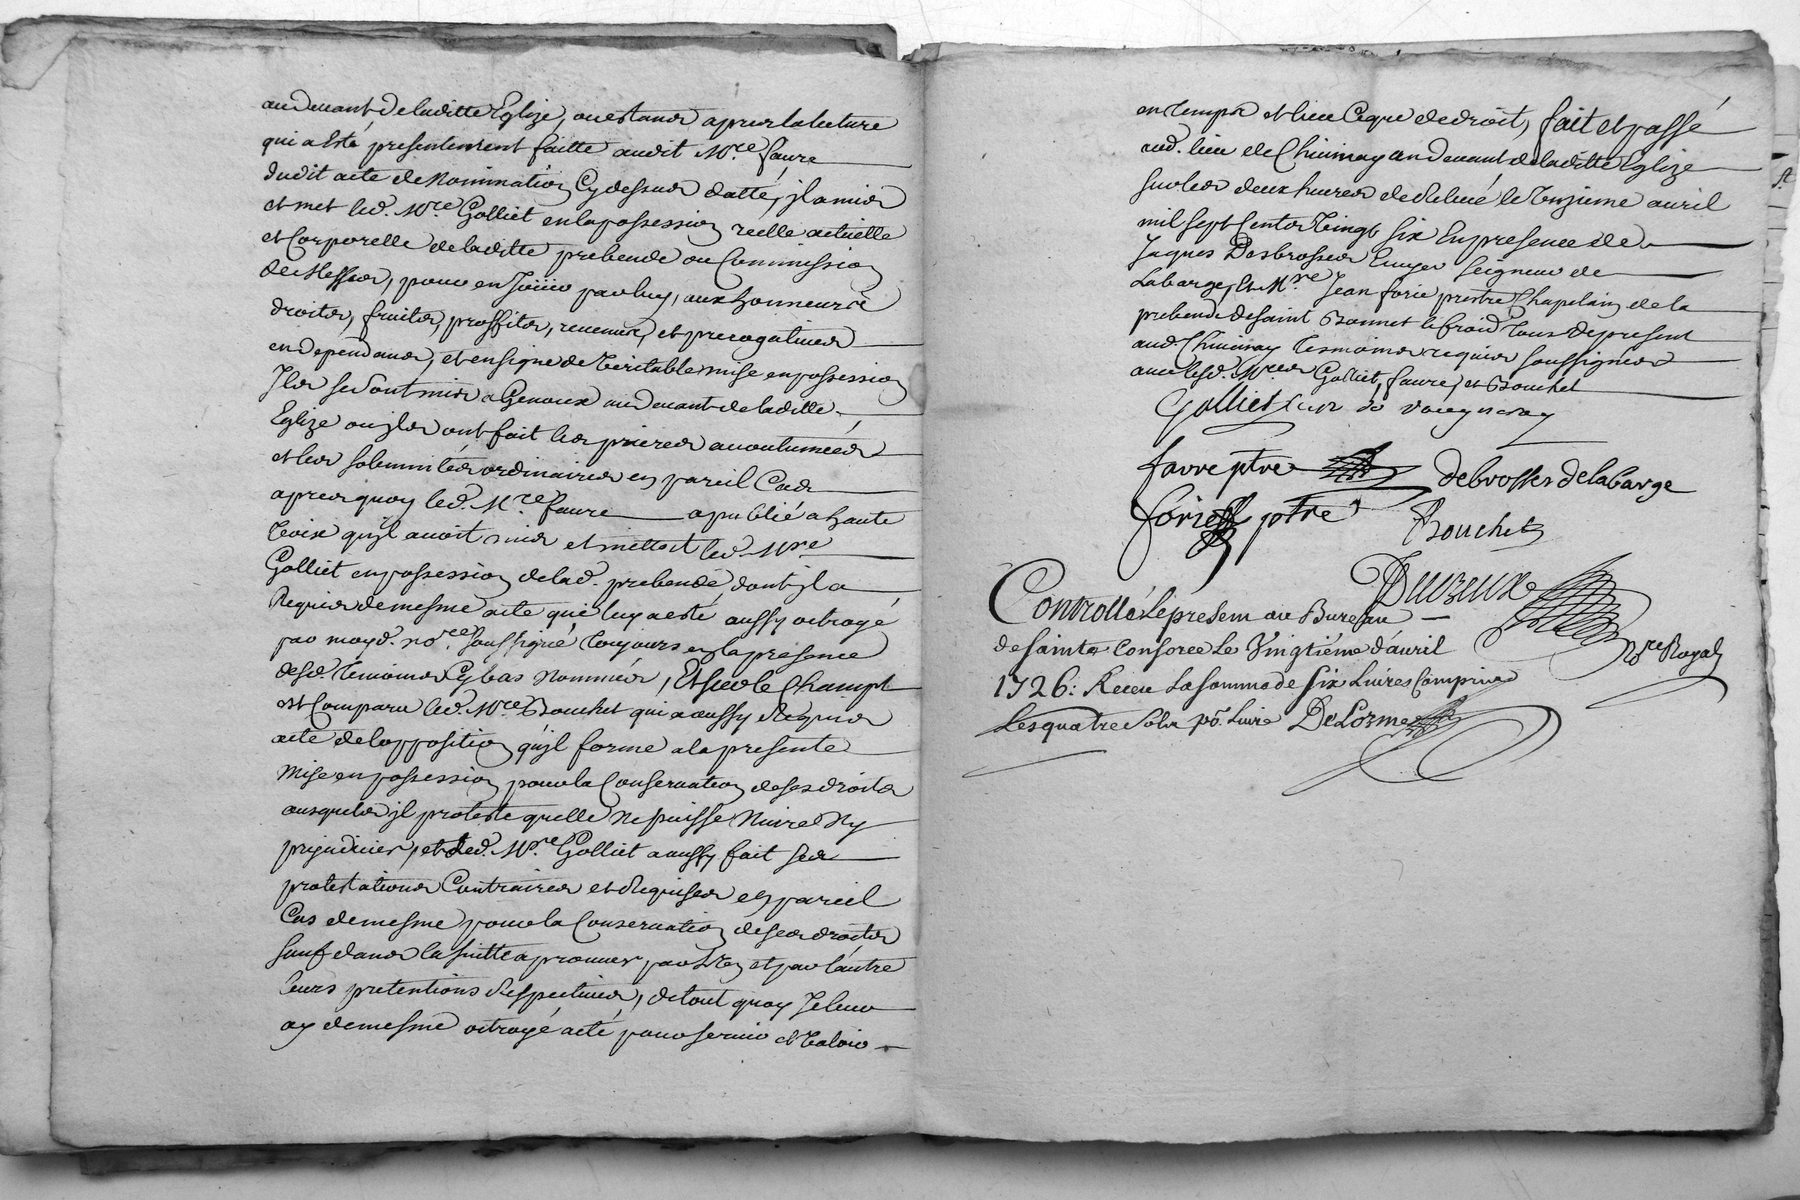 au devant de laditte Eglize, ou estand apres la lecture
qui a esté presentement faitte audit Mre. faure
dudit acte de Nomination Cy dessus datté, jl a mis
et met led. Mre Golliet en la possession reelle actuelle
et Corporelle de laditte prebende ou Commission
de Messes, pour en Joüir par luy, aux honneurs
droits, fruits, proffits, revenus, et prerogatives
en dependans, et en signe de veritable mise en possession
Jls se sont mis a Genoux au devant de laditte
Eglize ou jls ont fait les prieres acoutumées
et les solemnités ordinaires en pareil Cas
apres quoy led. Mre. faure a publié a haute
voix qu'jl avoit mis et mettoit led. Mre
Golliet en possession de lad. prebende dont jl a
Requis de mesme acte qui luy a esté aussy octroyé
par moyd. nore soussigné toujours en la presence
desd. temoins Cy bas Nommés, Et sur le Champt
est Comparu led. Mre Bouchet qui a aussy Requis
acte de lopposition qu'jl forme a la presente
Mise en possession pour la Conservation de ses droits
ausquels jl proteste quelle Ne puisse Nuire Ny
prejudicier, et led. Mre. Golliet a aussy fait ses
protestations Contraires et Requises en pareil
Cas de mesme pour la Conservation de ses droits
sauf dans la suitte a prouver par L'un et par lautre
leurs pretentions Respectives, de tout quoy Je leur
ay de mesme octroyé acte pour servir et valoir
en temps et lieu Ceque de droit, fait et passé
aud. lieu de Chiimay au devant de laditte Eglize
sur les deux heures de Relevé le onzieme avril
mil sept Cents vingt six En presence de
Jaques Desbrosses Ecuyer seigneur de
Labarge, et Mre Jean forie prestre Chapelain de la
prebende de saint Bonnet le froid tous de present
aud. Chiimay tesmoins requis soussignés
avec lesd. Mres Golliet, faure, et Bouchet
Golliet Cure de vaugneray
favre ptre debrosses delabarge
forie ptre Bouchet
Duzeux
Controllé le present au Bureau
de sainte Consorce Le Vingtiéme d'avril nre Royal
1726: Receu La somme de six Livres Compris
Les quatre sols po. Livre De Lorme